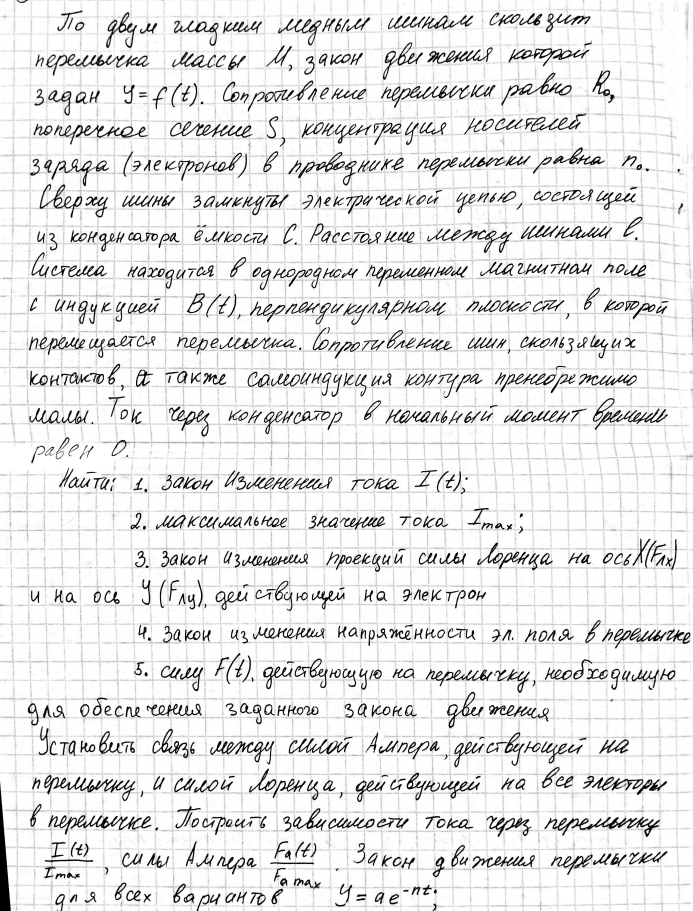 По двум гладким медным шинам скользит
перемычка массы М, закон движения которой
задан У=f(t). Сопротивление перемычки равно R₀,
поперечное сечение S, концентрация носителей
заряда (электронов) в проводнике перемычки равна n₀.
Сверху шины замкнуты электрической цепью, состоящей
из конденсатора ёмкости С. Расстояние между шинами l.
Система находится в однородном переменном магнитном поле
с индукцией B(t), перпендикулярном плоскости, в которой
перемещается перемычка. Сопротивление шин, скользящих
контактов, а также самоиндукция контура пренебрежимо
малы. Ток через конденсатор в начальный момент времени
равен 0.
Найти: 1. Закон изменения тока I(t);
2. максимальное значение тока Imax;
3. Закон изменения проекций силы Лоренца на ось X(Fлx)
и на ось У(Fлу), действующей на электрон
4. Закон изменения напряжённости эл. поля в перемычке
5. силу F(t), действующую на перемычку, необходимую
для обеспечения заданного закона движения
Установить связь между силой Ампера, действующей на
перемычку, и силой Лоренца, действующей на все электоры
в перемычке. Построить зависимости тока через перемычку
I(t)/Imax, силы Ампера Fa(t)/Fa max. Закон движения перемычки
для всех вариантов У=ae^-nt;